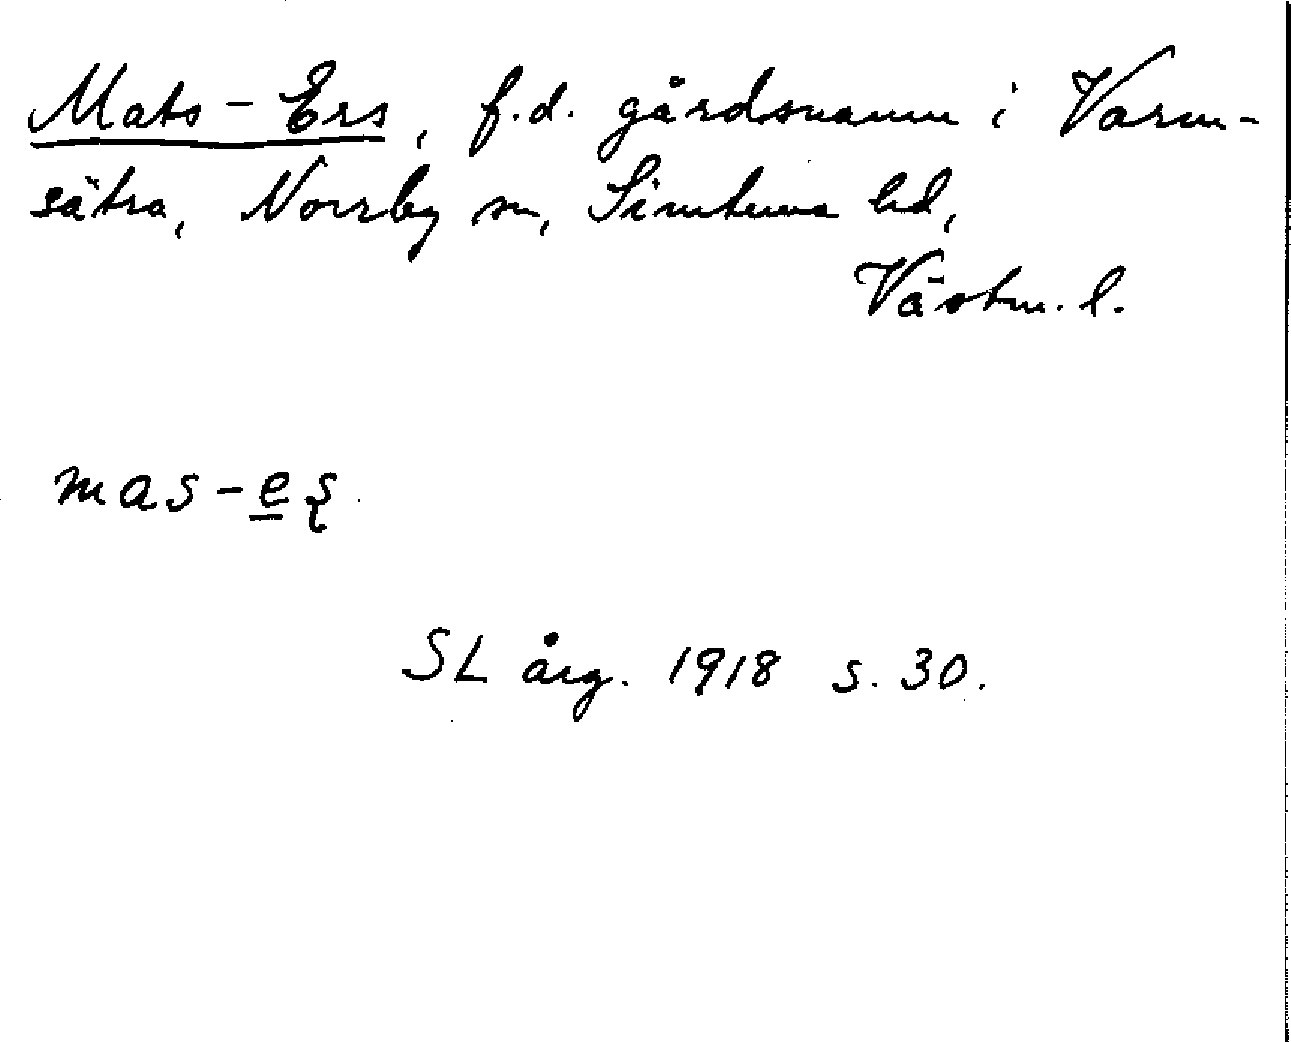 Mats-Ers, f.d. gårdsnamn i Varm-
sätra, Norrby sn, Simtuna hd,
Västm. l.
mas-e̲ʂ
SL årg. 1918 s. 30.